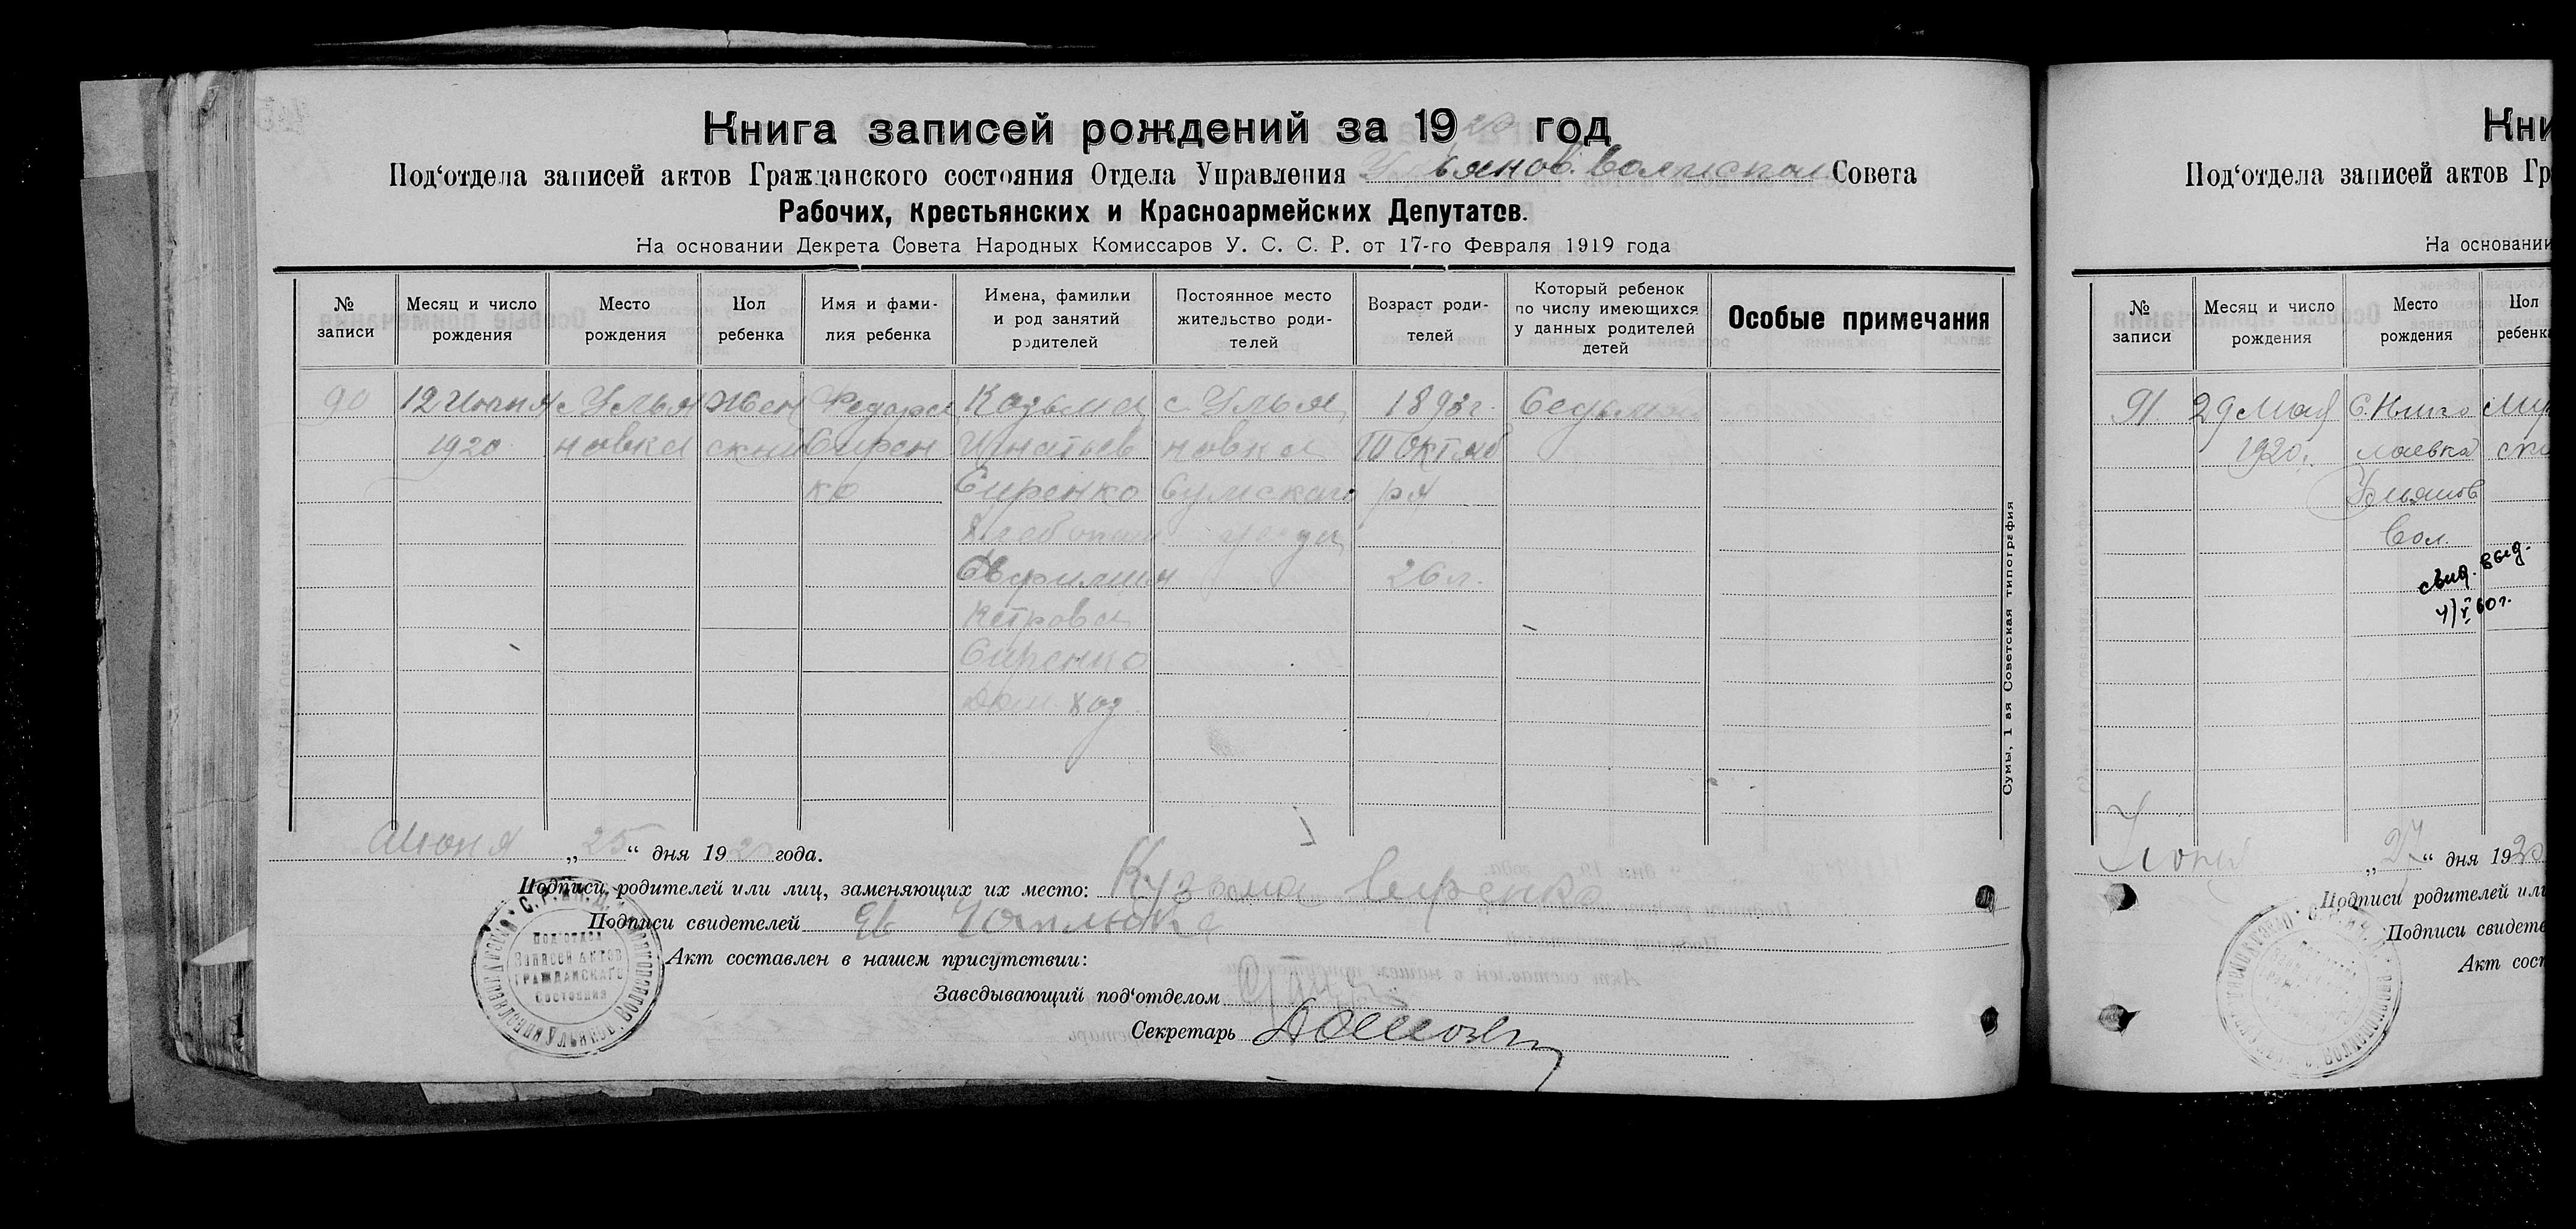 Книга записей рождений за 1920 год
Под‘отдела записей актов Гражданского состояния Отдела Управления Ульянов. Волисполкома Совета
Рабочих, Крестьянских и Красноармейских Депутатов.
На основании Декрета Совета Народных Комиссаров У. С. С. Р. от 17-го Февраля 1919 года
№ записи
Месяц и число рождения
Место рождения
Пол ребенка
Имя и фами-
лия ребенка
Имена, фамилии
и род занятий
родителей
Постоянное место
жительство роди-
телей
Возраст роди-
телей
Который ребенок
по числу имеющихся
у данных родителей
детей
Особые примечания
90
12 Июня
1920
с Улья
новка
Жен
ский
Сирен
ко
Козьма
Игнатьев
Сиренко
Евфимия
Петрова
Сиренко
Дом. хоз.
с. Улья
новка
Сумскаго
уезда
1893 г.
Октяб
ря
26 л.
Июня „25“ дня 1920 года.
Подписи родителей или лиц, заменяющих их место: Кузьма Сиренко
Подписи свидетелей
Акт составлен в нашем присутствии:
Заведывающий под‘отделом
Секретарь
Под‘отдел
Записей Актов
Гражданскаго
Состояния
Сумы, 1 ая Советская типография
Кни
Под‘отдела записей актов Гр
На основании
№ записи
Месяц и число рождения
Место рождения
Пол ребенк
91
29 Мая
1920 г.
С. Нико
лаевка
Ульянов
Вол.
Муж
ско
свид. выд.
4/V 60 г.
„27“ дня 1920
Подписи родителей или
Подписи свидете
Акт сост